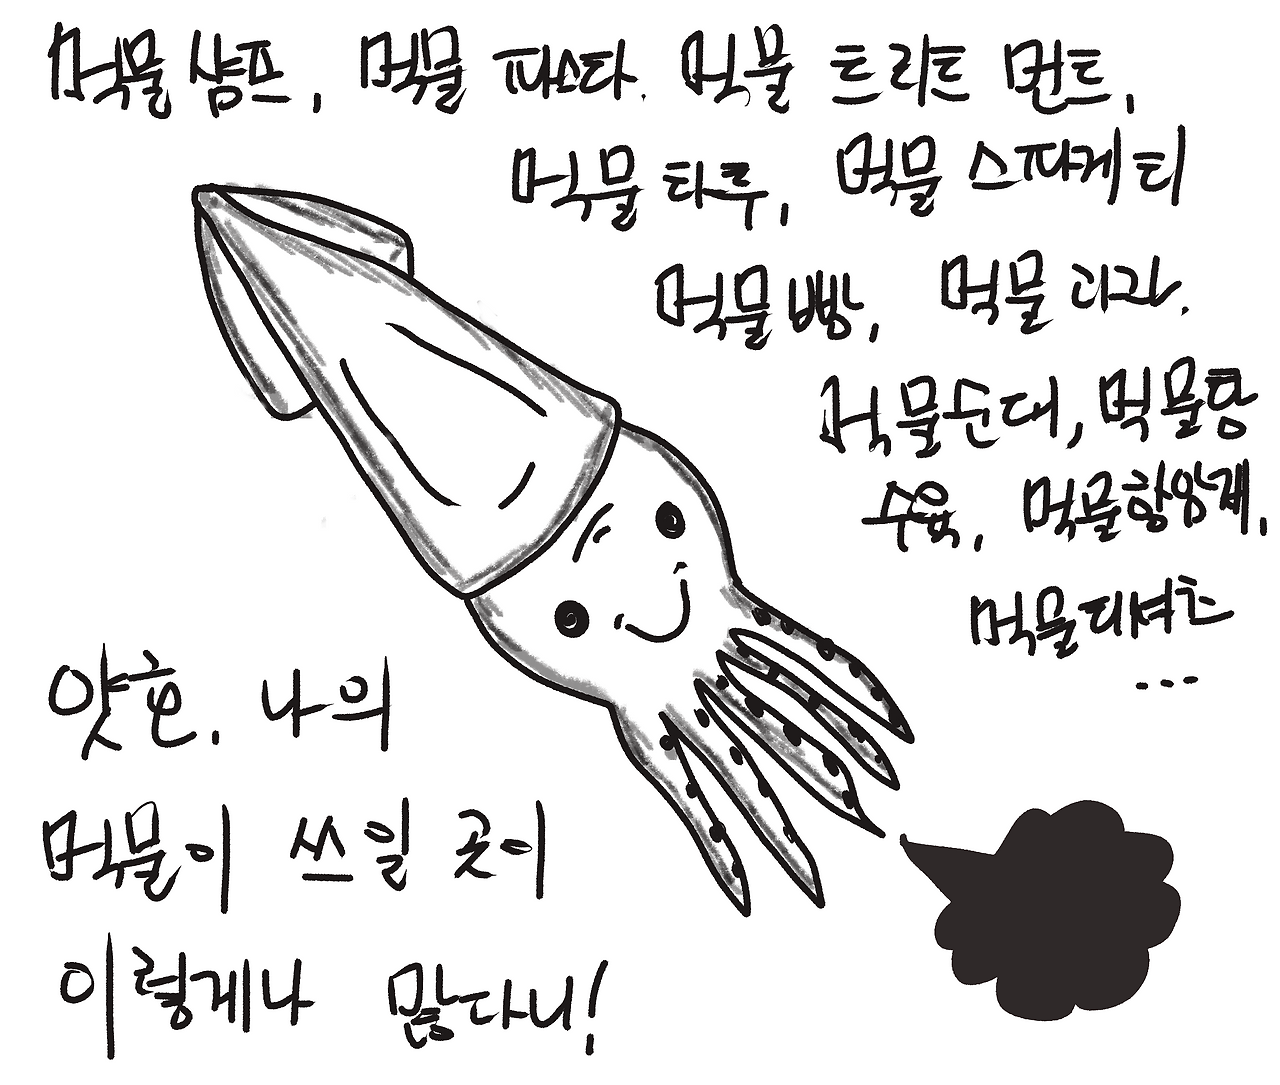 먹물샴프, 먹물 파스타. 먹물 트리트먼트,
먹물타루, 먹물 스파게티
먹물빵, 먹물과자.
먹물순대, 먹물탕
수육, 먹물항암제,
먹물티셔츠
...
얏호. 나의
먹물이 쓰일 곳이
이렇게나 많다니!